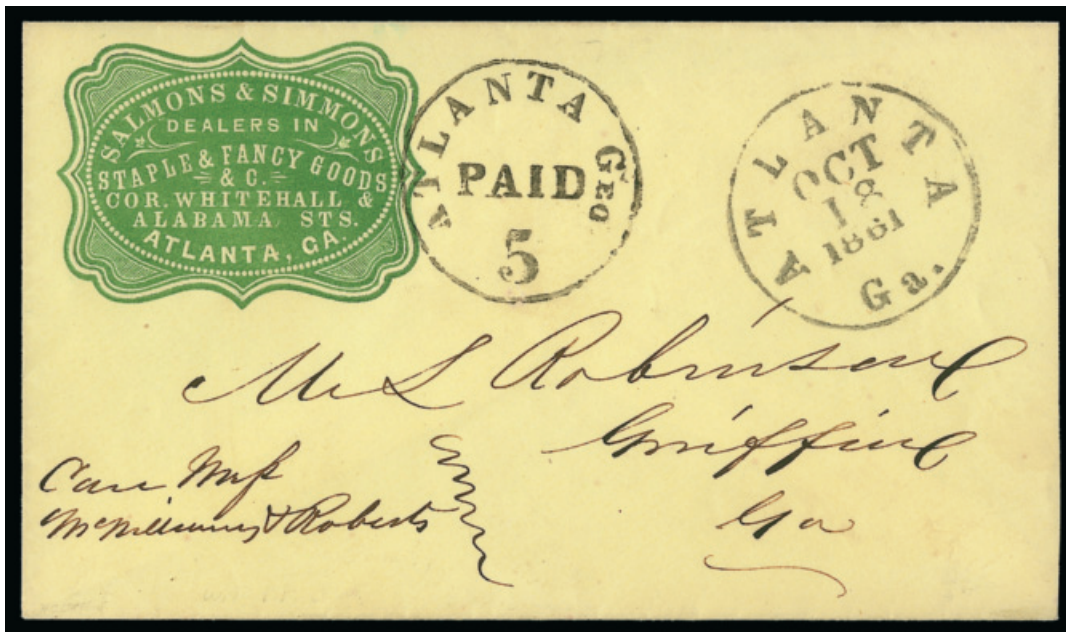 SALMONS & SIMMONS
DEALERS IN
STAPLE & FANCY GOODS
& C.
COR. WHITEHALL &
ALABAMA STS.
ATLANTA, GA.
ATLANTA GEO
PAID
5
ATLANTA Ga.
OCT
18
1861
Mr L Robinson
Griffin
Ga
Care Mess
McWilliams & Roberts